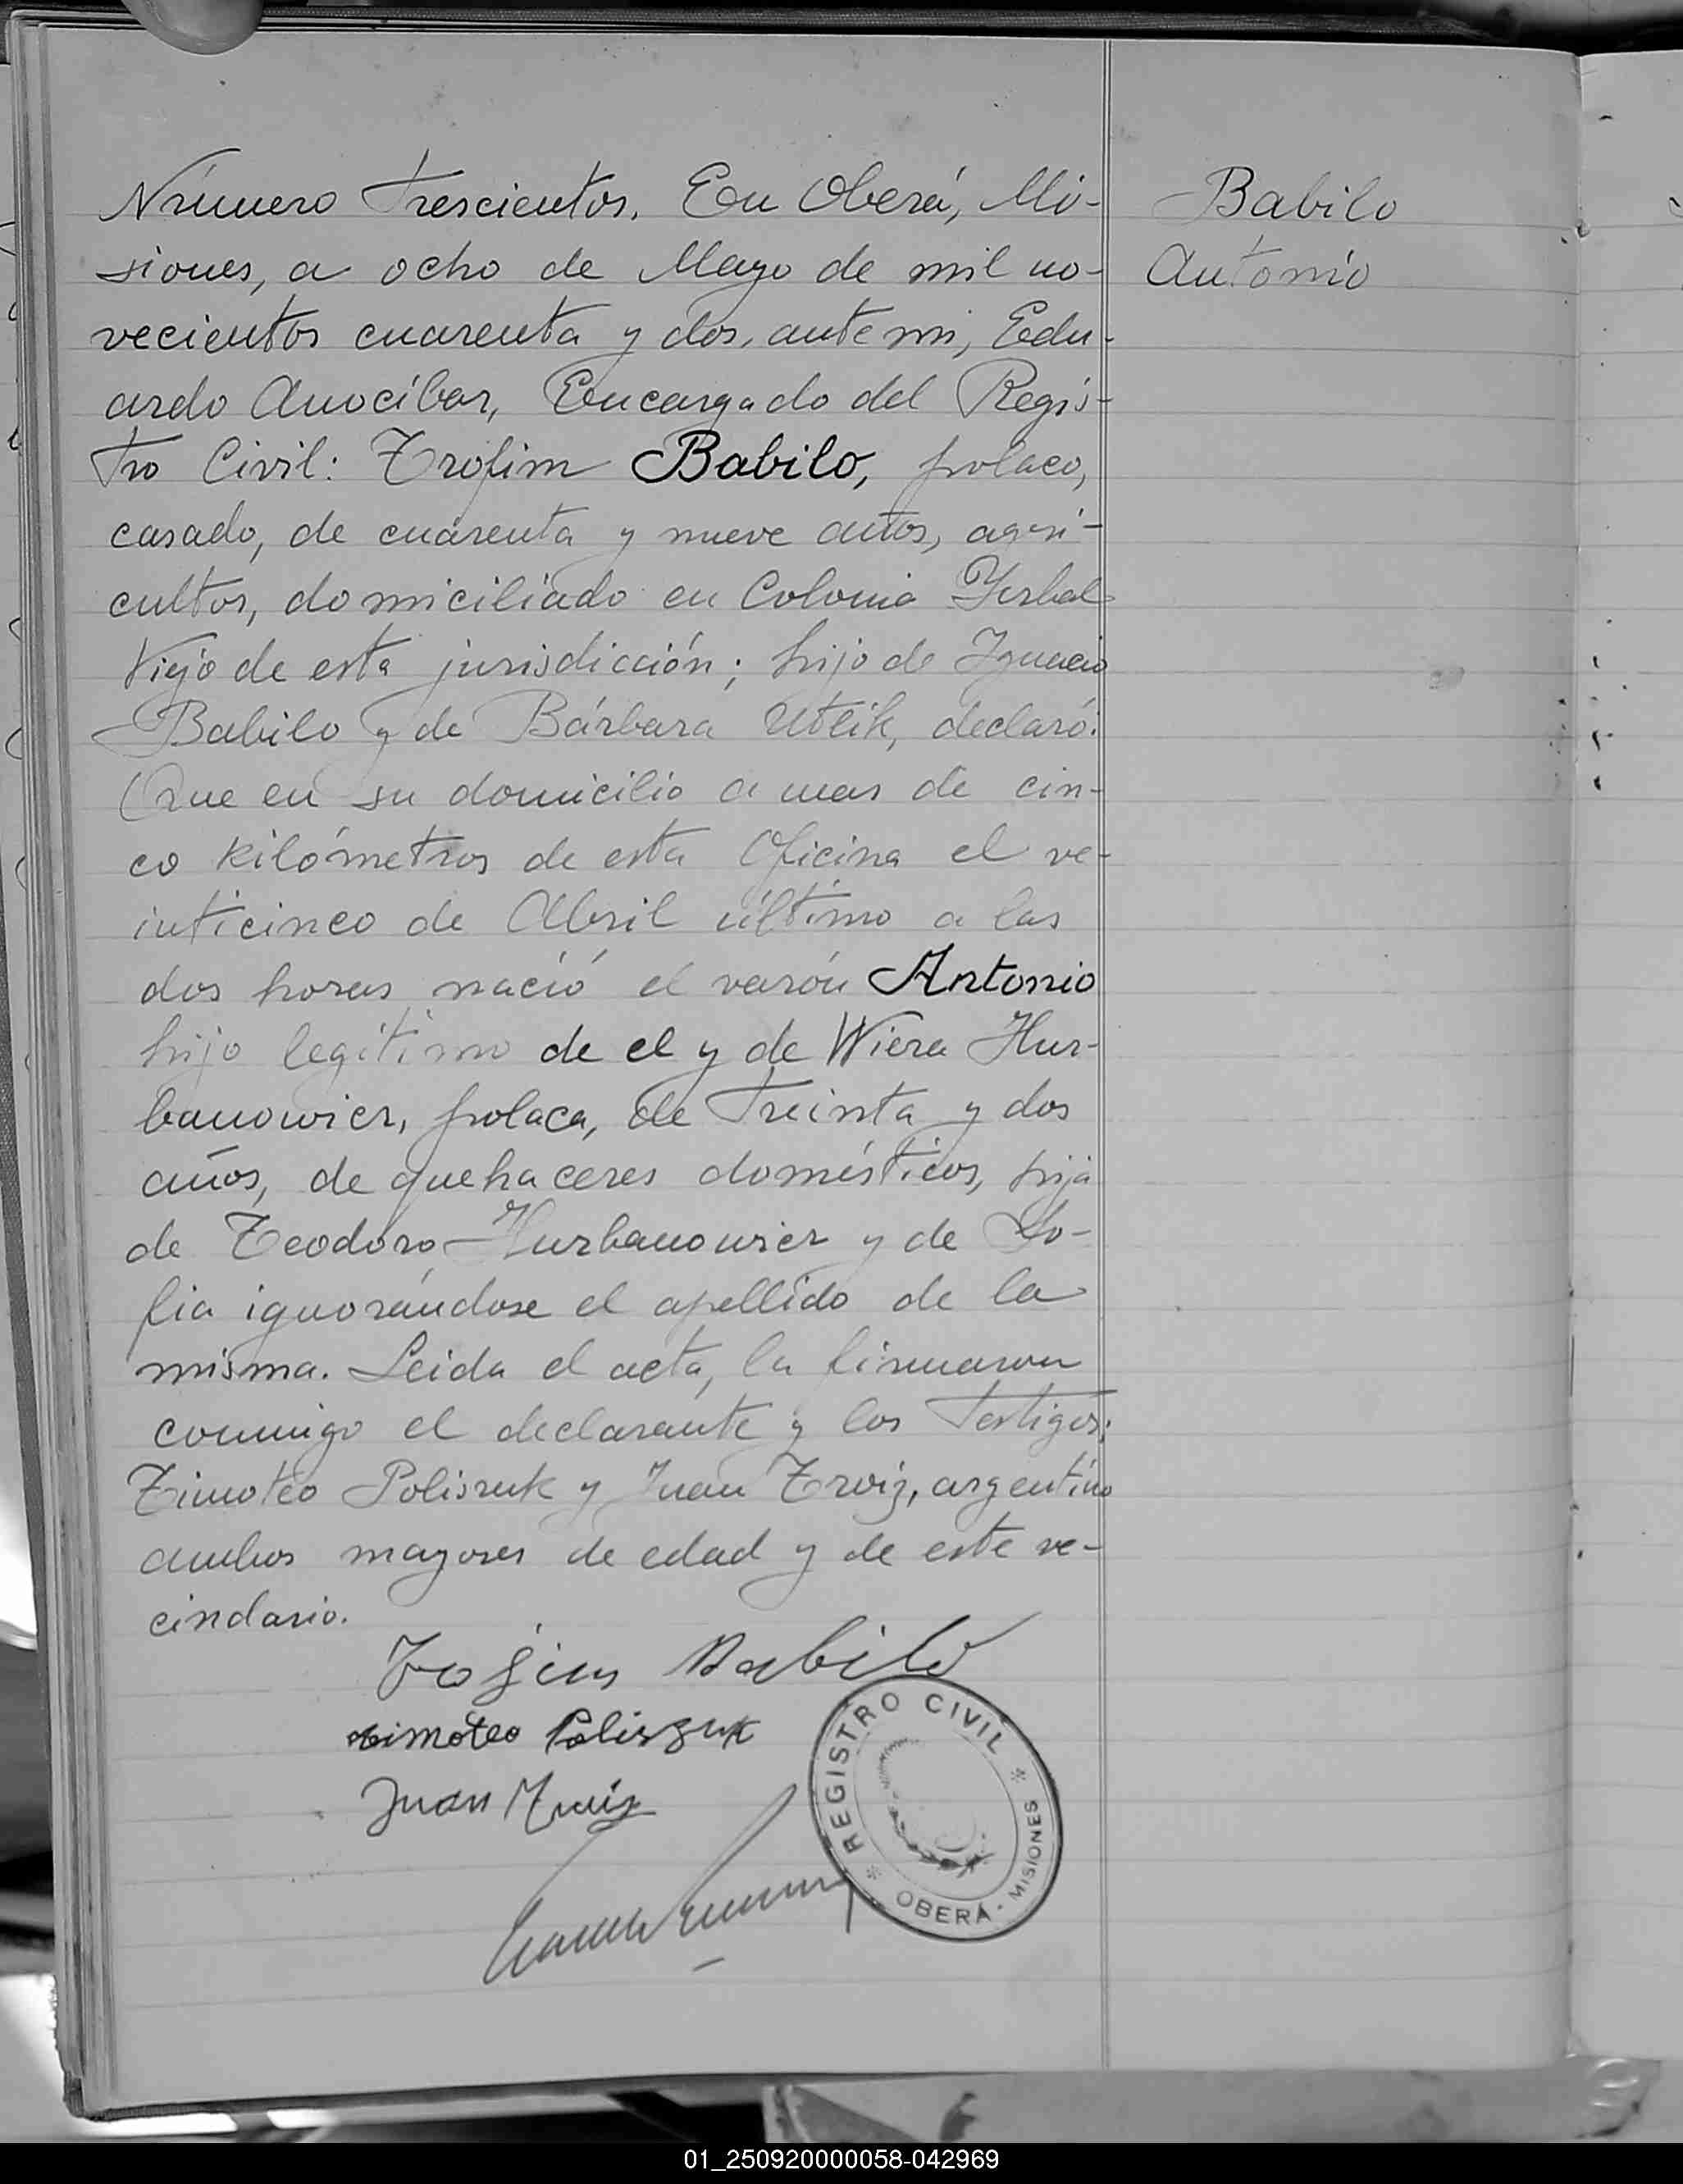 Número trescientos. En Oberá, Mi-
siones, a ocho de Mayo de mil no-
vecientos cuarenta y dos, ante mi, Edu-
ardo Anocíbar, Encargado del Regis-
tro Civil: Trofim Babilo, polaco,
casado, de cuarenta y nueve años, agri-
cultor, domiciliado en Colonia Yerbal
Viejo de esta jurisdicción; hijo de Ignacio
Babilo y de Bárbara Utlik, declaró:
Que en su domicilio a mas de cin-
co kilómetros de esta Oficina el ve-
inticinco de Abril último a las
dos horas nació el varón Antonio
hijo legítimo de el y de Wiera Hur-
banowicz, polaca, de treinta y dos
años, de quehaceres domésticos, hija
de Teodoro Hurbanowicz y de So-
fia ignorándose el apellido de la
misma. Leida el acta, la firmaron
conmigo el declarante y los testigos:
Timoteo Poliszuk y Juan Troiz, argentino
ambos mayores de edad y de este ve-
cindario.
Babilo
Antonio
Babilo
timoteo Poliszuk
Juan
REGISTRO CIVIL
OBERÁ - MISIONES
01_250920000058-042969